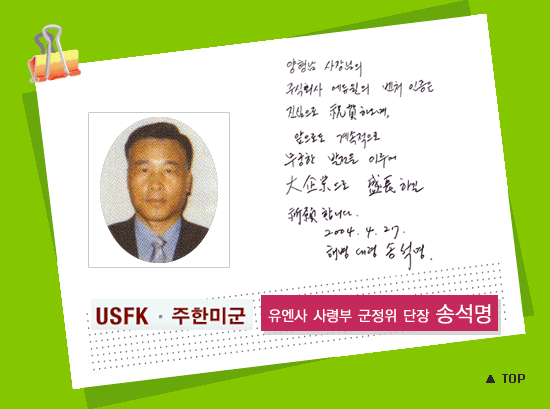 양형남 사장님의
주식회사 에듀윌의 벤처 인증을
진심으로 祝賀하오며,
앞으로도 계속적으로
무궁한 발전을 이루어
大企業으로 盛長하길
祈願합니다.
2004. 4. 27.
해병 대령 송석명.
USFK · 주한미군
유엔사 사령부 군정위 단장 송석명
▲ TOP